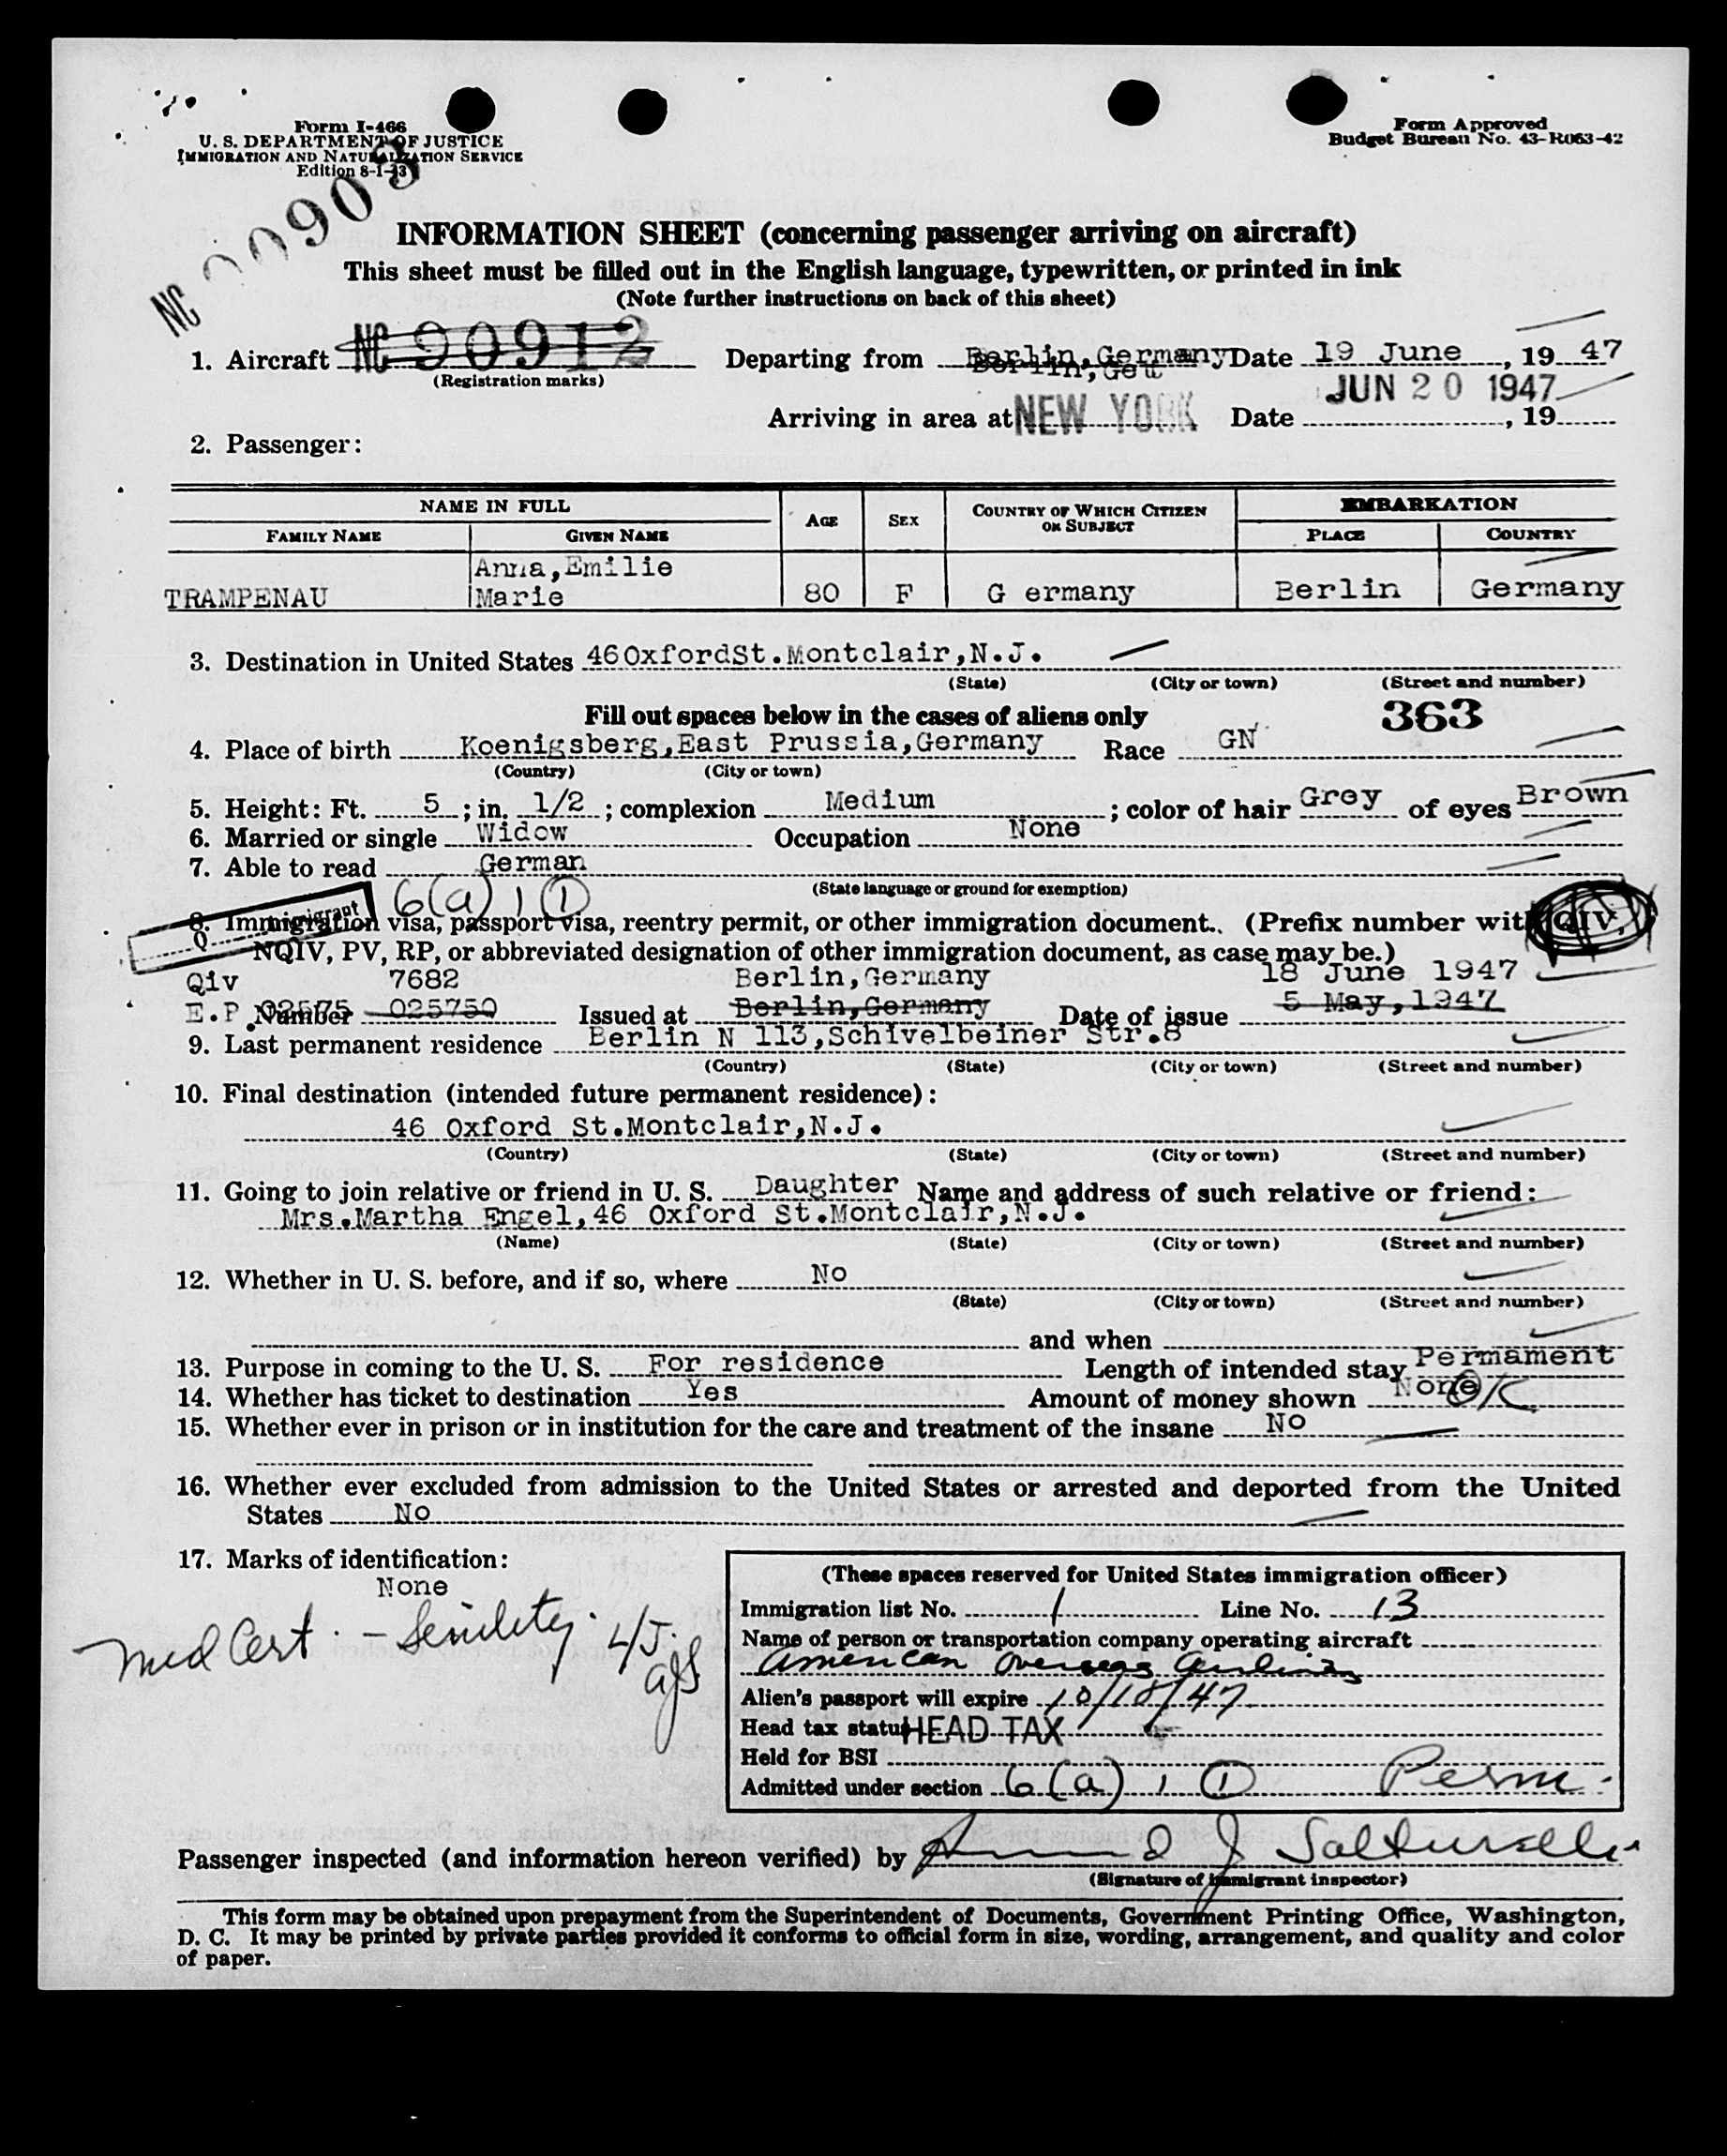 Form I-466
U. S. DEPARTMENT OF JUSTICE
IMMIGRATION AND NATURALIZATION SERVICE
Edition 8-1-43
Form Approved
Budget Bureau No. 43-R063-42
NC 90903
INFORMATION SHEET (concerning passenger arriving on aircraft)
This sheet must be filled out in the English language, typewritten, or printed in ink
(Note further instructions on back of this sheet)
1. Aircraft NC 90912 Departing from Berlin, Germany Date 19 June, 19 47
(Registration marks)
JUN 20 1947
Arriving in area at NEW YORK Date , 19
2. Passenger:
NAME IN FULL AGE SEX COUNTRY OF WHICH CITIZEN OR SUBJECT EMBARKATION
FAMILY NAME GIVEN NAME PLACE COUNTRY
Anna,Emilie
TRAMPENAU Marie 80 F G ermany Berlin Germany
3. Destination in United States 46OxfordSt.Montclair,N.J.
(State) (City or town) (Street and number)
Fill out spaces below in the cases of aliens only 363
4. Place of birth Koenigsberg,East Prussia,Germany Race GN
(Country) (City or town)
5. Height: Ft. 5 ; in. 1/2 ; complexion Medium ; color of hair Grey of eyes Brown
6. Married or single Widow Occupation None
7. Able to read German
(State language or ground for exemption)
6(a) 1 1
8. Immigration visa, passport visa, reentry permit, or other immigration document. (Prefix number with QIV,
NQIV, PV, RP, or abbreviated designation of other immigration document, as case may be.)
Qiv 7682 Berlin,Germany 18 June 1947
E.P. 02575 Number 025750 Issued at Berlin,Germany Date of issue 5 May,1947
9. Last permanent residence Berlin N 113,Schivelbeiner Str.8
(Country) (State) (City or town) (Street and number)
10. Final destination (intended future permanent residence):
46 Oxford St.Montclair,N.J.
(Country) (State) (City or town) (Street and number)
11. Going to join relative or friend in U. S. Daughter Name and address of such relative or friend:
Mrs.Martha Engel,46 Oxford St.Montclair,N.J.
(Name) (State) (City or town) (Street and number)
12. Whether in U. S. before, and if so, where No
(State) (City or town) (Street and number)
and when
13. Purpose in coming to the U. S. For residence Length of intended stay Permament
14. Whether has ticket to destination Yes Amount of money shown None OK
15. Whether ever in prison or in institution for the care and treatment of the insane No
16. Whether ever excluded from admission to the United States or arrested and deported from the United
States No
17. Marks of identification:
None
Med Cert. - Senility.
(These spaces reserved for United States immigration officer)
Immigration list No. 1 Line No. 13
Name of person or transportation company operating aircraft
American Overseas Airlines
Alien's passport will expire 10/18/47
Head tax status HEAD TAX
Held for BSI
Admitted under section 6(a) 1 1 Perm.
Passenger inspected (and information hereon verified) by
(Signature of immigrant inspector)
This form may be obtained upon prepayment from the Superintendent of Documents, Government Printing Office, Washington,
D. C. It may be printed by private parties provided it conforms to official form in size, wording, arrangement, and quality and color
of paper.